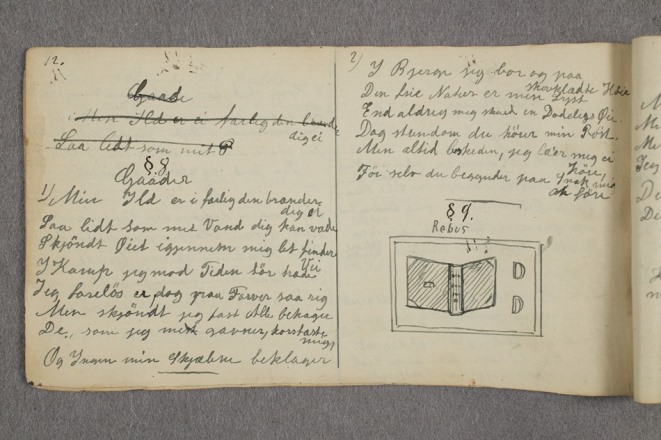 12.
Gaade
Min Ild er ei farlig den brænder
dig ei
Saa lidt som mit
§. 8.
Gaader
1) Min Ild er ei farlig den brænder
dig ei
Saa lidt som mit Vand dig kan væde
Skjöndt Öiet igjennem mig let finder
Vei
Y Kamp jeg mod Tiden tör
Jeg farvelös er, dog paa Farver saa rig
Men skjöndt jeg fast Alle behager
De, som jeg mest gavner,
mig,
Og Yngen min Skjæbne beklager
2) Y Bjerge jeg bor og paa
skovklædte Höie
Den frie Natur er min Lyst
End aldrig mig skued en Dödeligs Öie
Dog stundom du hörer min Röst.
Men altid beskeden, jeg lader mig ei
höre,
För selv du begynder paa Snak mig
at före
§ 9.
Rebus
D
D